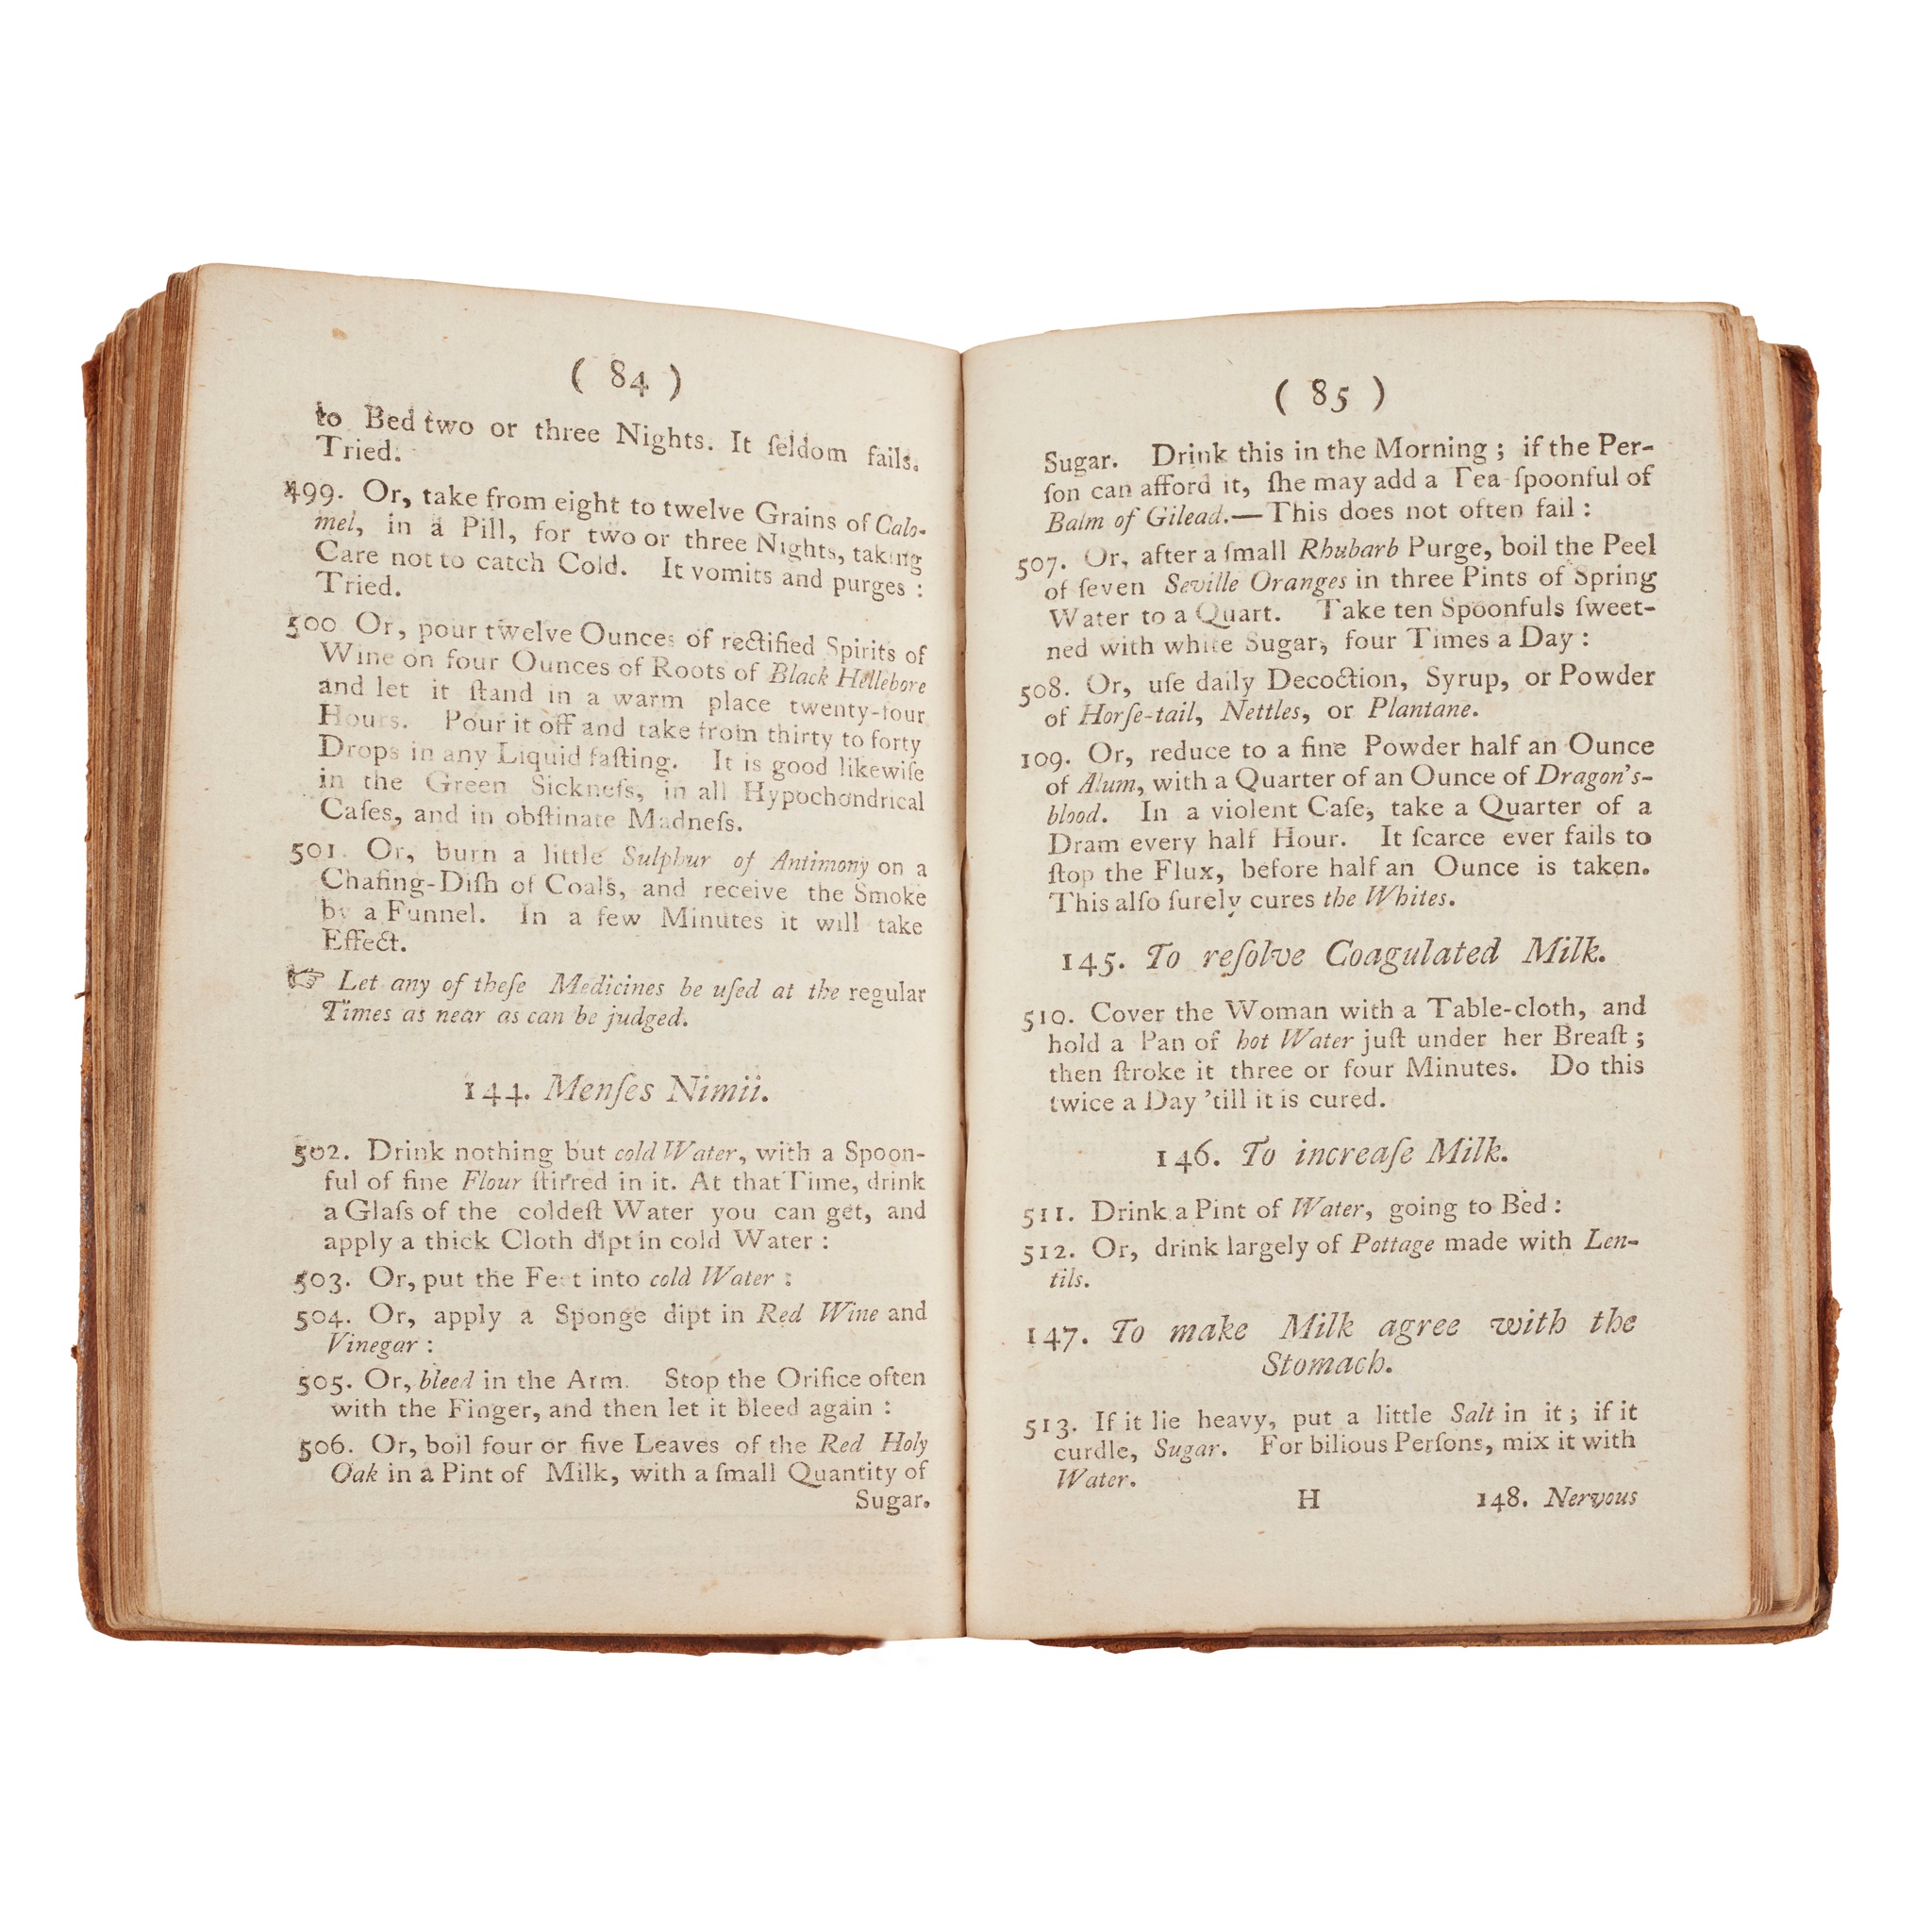 ( 84 )
to Bed two or three Nights. It ſeldom fails.
Tried.
499. Or, take from eight to twelve Grains of Calo-
mel, in a Pill, for two or three Nights, taking
Care not to catch Cold. It vomits and purges :
Tried.
500 Or, pour twelve Ounces of rectified Spirits of
Wine on four Ounces of Roots of Black Hellebore
and let it ſtand in a warm place twenty-four
Hours. Pour it off and take from thirty to forty
Drops in any Liquid faſting. It is good likewiſe
in the Green Sickneſs, in all Hypochondrical
Caſes, and in obſtinate Madneſs.
501. Or, burn a little Sulphur of Antimony on a
Chafing-Diſh of Coals, and receive the Smoke
by a Funnel. In a few Minutes it will take
Effect.
☞ Let any of theſe Medicines be uſed at the regular
Times as near as can be judged.
144. Menſes Nimii.
502. Drink nothing but cold Water, with a Spoon-
ful of fine Flour ſtirred in it. At that Time, drink
a Glaſs of the coldeſt Water you can get, and
apply a thick Cloth dipt in cold Water :
503. Or, put the Feet into cold Water :
504. Or, apply a Sponge dipt in Red Wine and
Vinegar :
505. Or, bleed in the Arm. Stop the Orifice often
with the Finger, and then let it bleed again :
506. Or, boil four or five Leaves of the Red Holy
Oak in a Pint of Milk, with a ſmall Quantity of
Sugar.
( 85 )
Sugar. Drink this in the Morning ; if the Per-
ſon can afford it, ſhe may add a Tea-ſpoonful of
Balm of Gilead.—This does not often fail :
507. Or, after a ſmall Rhubarb Purge, boil the Peel
of ſeven Seville Oranges in three Pints of Spring
Water to a Quart. Take ten Spoonfuls ſweet-
ned with white Sugar, four Times a Day :
508. Or, uſe daily Decoction, Syrup, or Powder
of Horſe-tail, Nettles, or Plantane.
109. Or, reduce to a fine Powder half an Ounce
of Alum, with a Quarter of an Ounce of Dragon's-
blood. In a violent Caſe, take a Quarter of a
Dram every half Hour. It ſcarce ever fails to
ſtop the Flux, before half an Ounce is taken.
This alſo ſurely cures the Whites.
145. To reſolve Coagulated Milk.
510. Cover the Woman with a Table-cloth, and
hold a Pan of hot Water juſt under her Breaſt ;
then ſtroke it three or four Minutes. Do this
twice a Day 'till it is cured.
146. To increaſe Milk.
511. Drink a Pint of Water, going to Bed :
512. Or, drink largely of Pottage made with Len-
tils.
147. To make Milk agree with the
Stomach.
513. If it lie heavy, put a little Salt in it ; if it
curdle, Sugar. For bilious Perſons, mix it with
Water.
H 148. Nervous